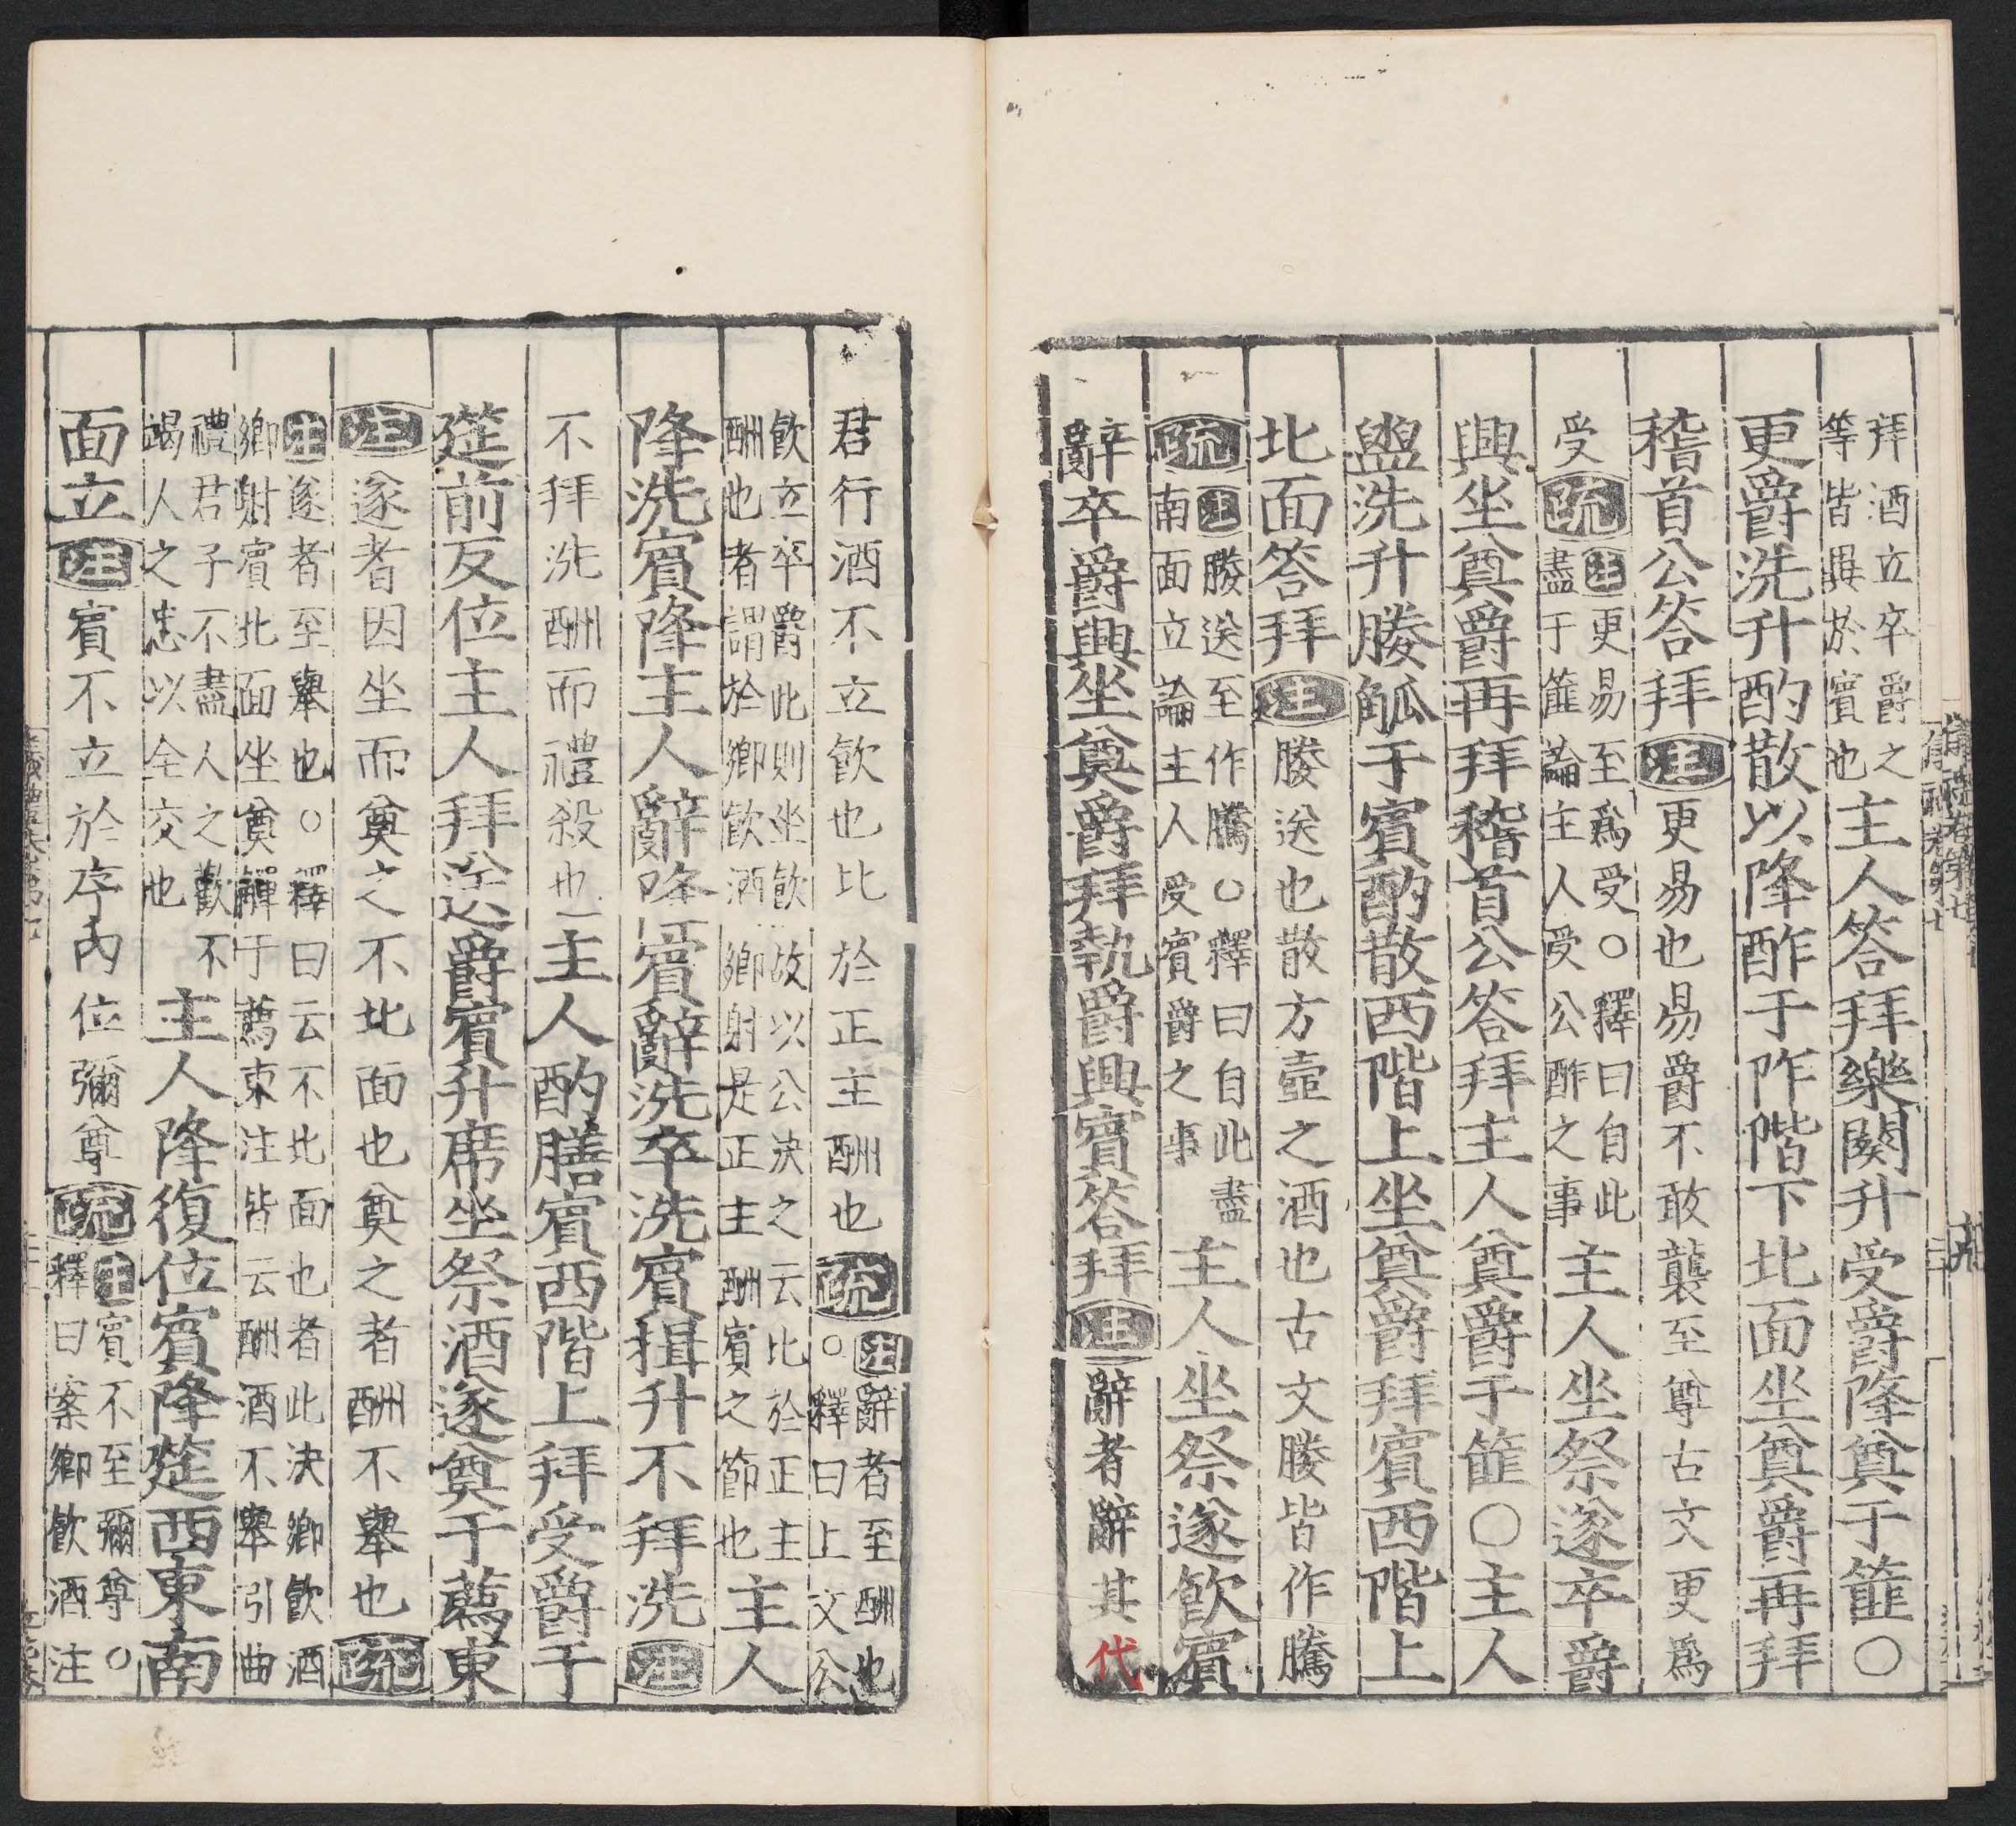 拜酒立卒爵之
等皆異於賓也主人答拜樂闋升受爵降奠于篚○
更爵洗升酌散以降酢于阼階下北面坐奠爵再拜
稽首公答拜注更易也易爵不敢襲至尊古文更爲
受疏注更易至爲受○釋曰自此
盡于篚論主人受公酢之事主人坐祭遂卒爵
興坐奠爵再拜稽首公答拜主人奠爵于篚○主人
盥洗升媵觚于賓酌散西階上坐奠爵拜賓西階上
北面答拜注媵送也散方壺之酒也古文媵皆作騰
疏注媵送至作騰○釋曰自此盡
南面立論主人受賓爵之事主人坐祭遂飲賓
辭卒爵興坐奠爵拜執爵興賓答拜注辭者辭其代
君行酒不立飲也比於正主酬也疏注辭者至酬也
○釋曰上文公
飲立卒爵此則坐飲故以公決之云比於正主
酬也者謂於鄉飲酒鄉射是正主酬賓之節也主人
降洗賓降主人辭降賓辭洗卒洗賓揖升不拜洗注
不拜洗酬而禮殺也主人酌膳賓西階上拜受爵于
筵前反位主人拜送爵賓升席坐祭酒遂奠于薦東
注遂者因坐而奠之不北面也奠之者酬不舉也疏
注遂者至舉也○釋曰云不北面也者此決鄉飲酒
鄉射賓北面坐奠觶于薦東注皆云酬酒不舉引曲
禮君子不盡人之歡不
竭人之忠以全交也主人降復位賓降筵西東南
面立注賓不立於序內位彌尊疏注賓不至彌尊○
釋曰案鄉飲酒注